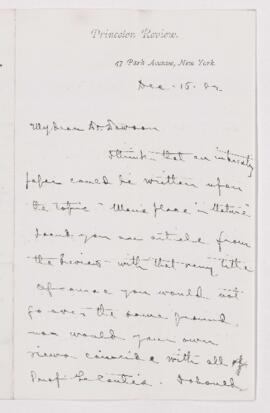 Princeton Review.
47 Park Avenue, New York
Dec. 15. 82.
My dear Dr Dawson
I think that an interesting
paper could be written upon
the topic "Man's place in Nature"
I send you an article from
the Review with that very title
Of course you would not
go over the same ground
nor would your own
views coincide with all of
Prof Le Conte's. I should